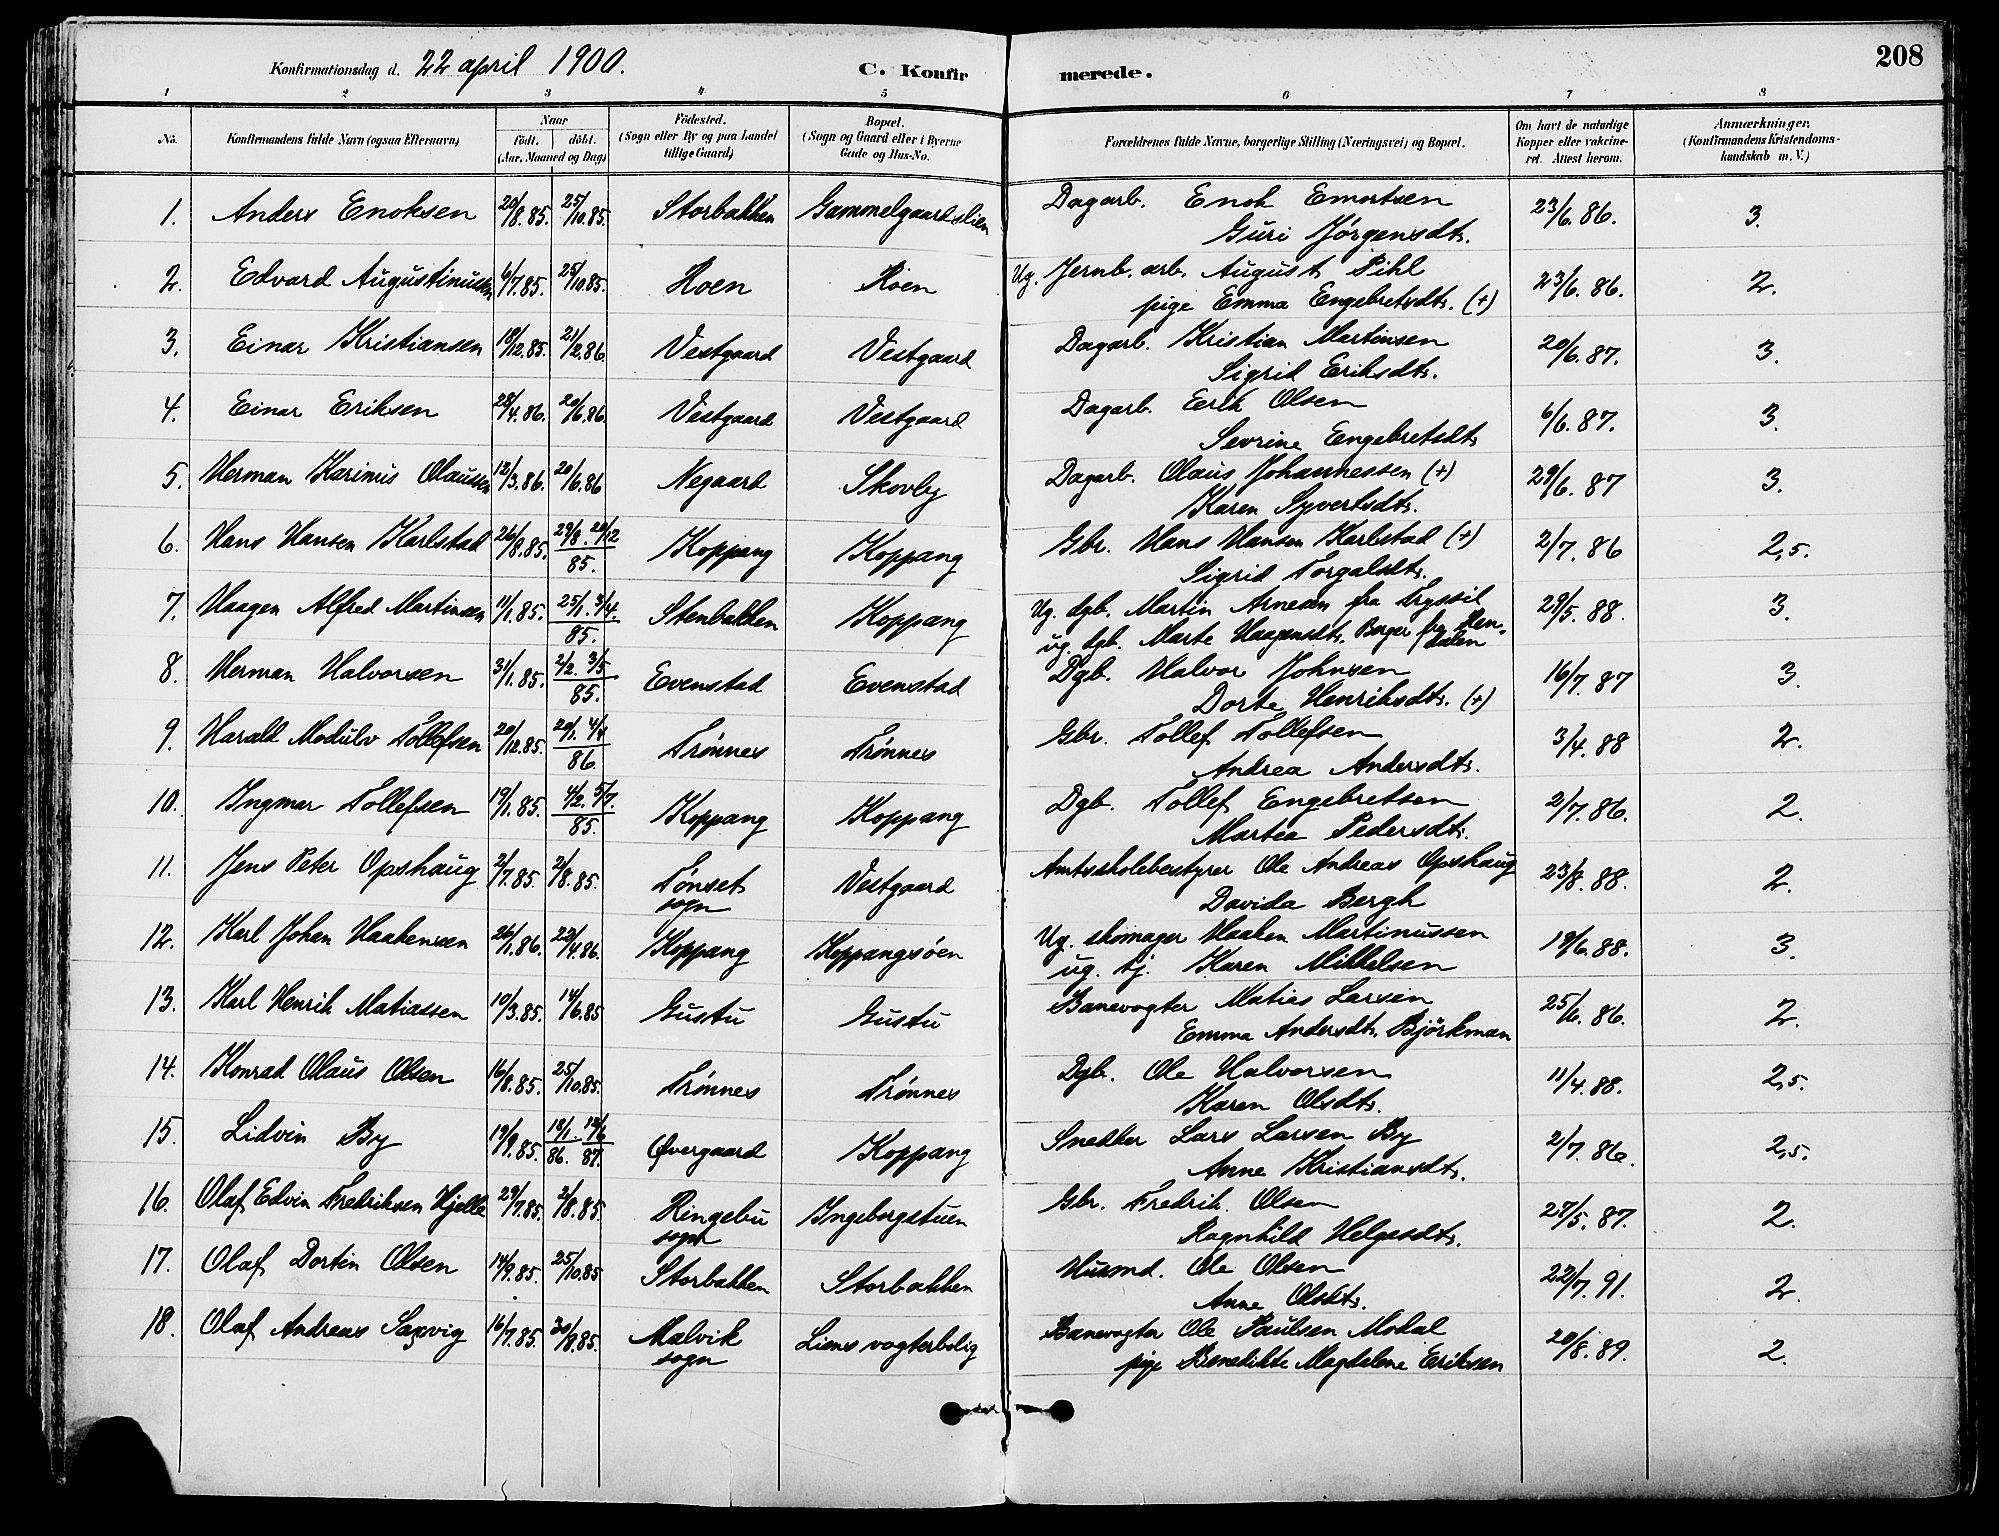 Konfirmationsdag d. 22 april 1900. C. Konfir merede. 208
1 2 3 4 5 6 7 8
No. Konfirmandens fulde Navn (ogsaa Efternavn) Naar födt. döbt. (Aar, Maaned og Dag) Födested. (Sogn eller By og paa Landet tillige Gaard) Bopæl. (Sogn og Gaard eller i Byerne Gade og Hus-No. Forældrenes fulde Navne, borgerlige Stilling (Næringsvei) og Bopæl. Om havt de naturlige Kopper eller vakcineret. Attest herom. Anmærkninger. (Konfirmandens Kristendomskundskab m. V.)
1. Anders Enoksen 20/8.85. 25/10.85. Storbakken Gammelgaardslien Dagarb. Enok Emortsen 23/6.86. 3.
Guri Jørgensdtr.
2. Edvard Augustinussen 6/7.85. 25/10.85. Roen Roen Ug. Jernb. arb. August Pihl 23/6.86. 2.
pige Emma Engebretsdtr. (+)
3. Einar Kristiansen 18/12.85. 21/2.86 Vestgaard Vestgaard Dagarb. Kristian Martinsen 20/6.87. 3.
Sigrid Eriksdtr.
4. Einar Eriksen 28/4.86. 20/6.86. Vestgaard Vestgaard Dagarb. Erik Olsen 6/6.87. 3.
Sevrine Engebretsdtr
5. Herman Karinus Olaussen 12/3.86. 20/6.86 Negaard Skovly Dagarb. Olaus Johannessen (+) 29/6.87 3.
Karen Syvertsdtr.
6. Hans Hansen Karlstad 26/8.85. 29/8. 20/12 85. Koppang Koppang Gbr. Hans Hansen Karlstad (+) 2/7.86 2,5.
Sigrid Torgalsdtr.
7. Haagen Alfred Martinsen 11/1.85. 25/1. 3/4. 85. Stenbakken Koppang Ug. dgb. Martin Arnesen fra Trysil 28/5.88. 3.
ug. dgb. Marte Haagensdtr. Berger fra Rendalen
8. Herman Halvorsen 31/1.85. 2/2. 3/5 85. Evenstad Evenstad Dgb. Halvor Johnsen 16/7.87 3.
Dorte Henriksdtr. (+)
9. Harald Modulv Tollefsen 20/12.85. 20/1. 4/4 86. Trønnes Trønnes Gbr. Tollef Tollefsen 3/4.88 2.
Andrea Andersdtr.
10. Ingmar Tollefsen 19/1.85. 4/2. 5/7. 85. Koppang Koppang Dgb. Tollef Engebretsen 2/7.86. 2.
Martea Pedersdtr.
11. Jens Peter Opshaug 2/7.85. 2/8.85. Tönset sogn Vestgaard Amtsskolebestyrer Ole Andreas Opshaug 23/8.88. 2.
Davida Bergh
12. Karl Johan Haakensen 26/1.86. 22/4.86. Koppang Koppangsöen Ug. skomager Haaken Martinussen 19/6.88. 3.
ug. tj. Karen Mikkelsen
13. Karl Henrik Matiassen 10/3.85. 14/6.85 Gustu Gustu Banevogter Matias Larsen 25/6.86. 2.
Emma Andersdtr. Björkman
14. Konrad Olaus Olsen 16/8.85. 25/10.85. Trønnes Trønnes Dgb. Ole Halvorsen 11/4.88. 2,5.
Karen Olsdtr.
15. Lidvin By 19/9.85. 18/1. 12/6 86. 87. Øvergaard Koppang Snedker Lars Larsen By 2/7.86. 2,5.
Anne Kristiansdtr.
16. Olaf Edvin Fredriksen Hjelle 29/7.85. 2/8.85. Ringebu sogn Ingeborgstuen Gbr. Fredrik Olsen 28/5.87. 2.
Ragnhild Helgesdtr.
17. Olaf Dortin Olsen 14/9.85. 25/10.85 Storbakken Storbakken Husmd. Ole Olsen 22/7.91. 2.
Anne Olsdtr.
18. Olaf Andreas Saxvig 16/7.85. 30/8.85. Malvik sogn Liens vogterbolig Banevogter Ole Paulsen Modal 20/8.89. 2.
pige Benedikte Magdalene Eriksen